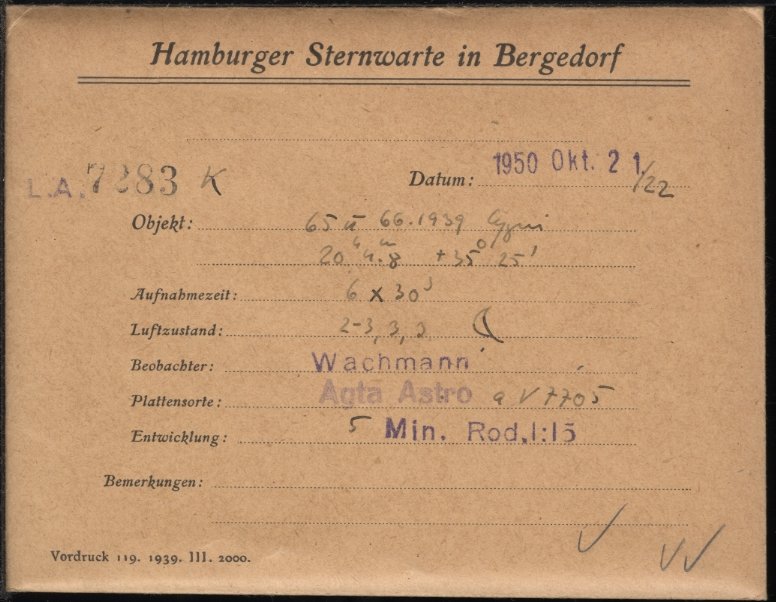 Hamburger Sternwarte in Bergedorf
L.A. 7283 K
Datum: 1950 Okt. 21/22
Objekt: 65 u 66.1939 Cygni
20ʰ 4ᵐ.8 +35° 25'
Aufnahmezeit: 6 x 30
Luftzustand: 2-3, 3, 3
Beobachter: Wachmann
Plattensorte: Agfa Astro a V 7705
Entwicklung: 5 Min. Rod. 1:15
Bemerkungen:
Vordruck 119. 1939. III. 2000.